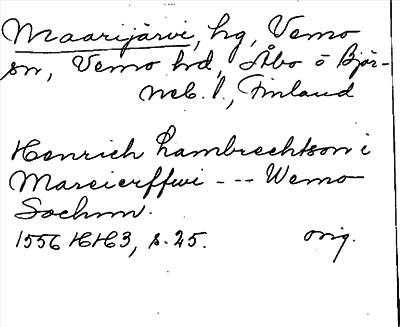 Maarijärvi, hg, Vemo
sn, Vemo hd, Åbo o Björ-
neb. l., Finland
Henrich Lambrechtson i
Mareierffwi --- Wemo
Sochnn.
1556 HH3, s. 25. orig.